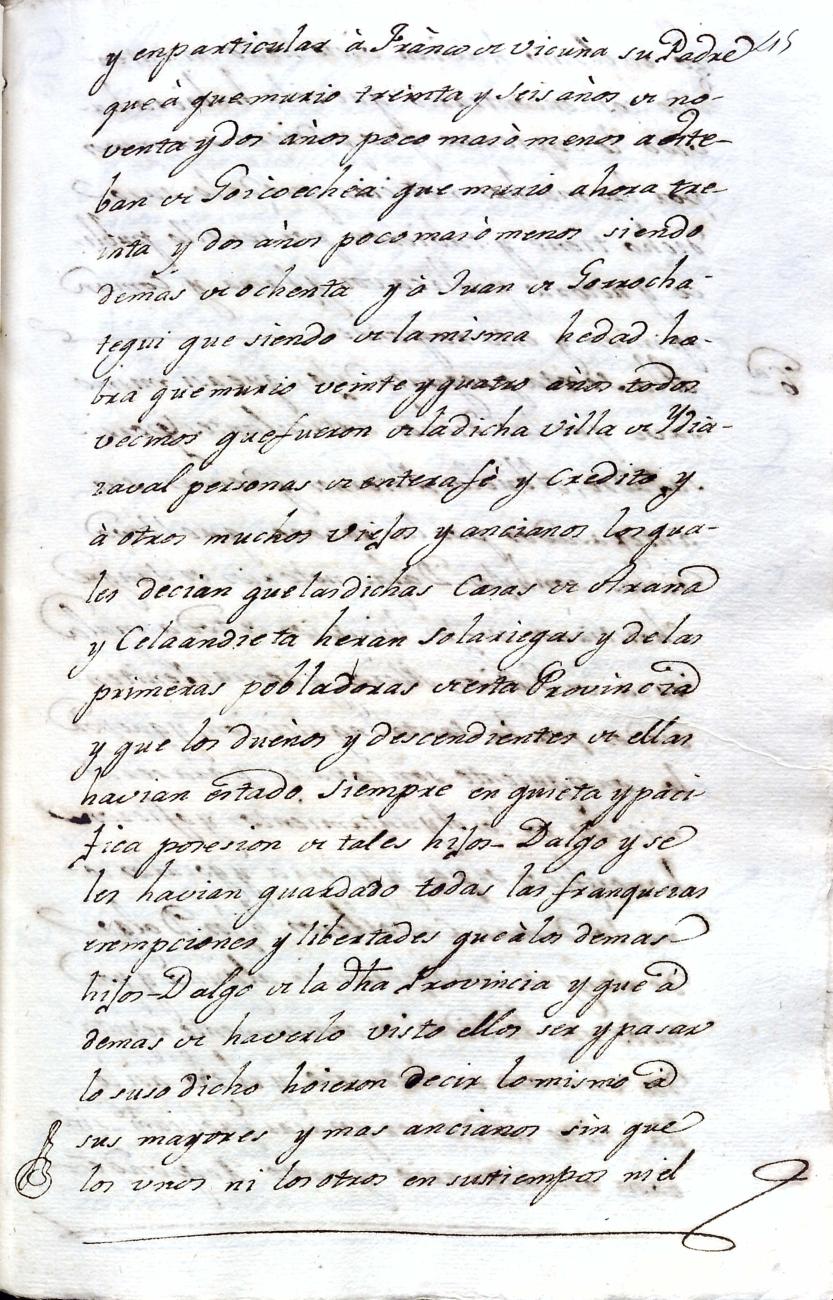 y enparticular à Franco de Vicuña su Padre 45
que à que murio treinta y seis años de no-
venta y dos años poco mas ò menos a Este-
ban de Goicoechea que murio ahora tre-
inta y dos años poco mas ò menos siendo
demas de ochenta y à Juan de Gorrocha-
tegui que siendo de la misma hedad ha-
bra que murio veinte y quatro años todos
vecinos que fueron de la dicha Villa de Ydia-
zaval personas de entera fè y credito y
à otros muchos viejos y ancianos los qua-
les decian que las dichas Casas de Arana
y Celaandieta heran solariegas y de las
primeras pobladoras de esta Provincia
y que los dueños y descendientes de ellas
havian estado siempre en quieta y paci
fica posesion de tales hijos-Dalgo y se
les havian guardado todas las franquezas
exempciones y libertades que à los demas
hijos-Dalgo de la dha Provincia y que à
demas de haverlo visto ellos ser y pasar
lo suso dicho hoieron decir lo mismo à
sus mayores y mas ancianos sin que
los unos ni los otros en sus tiempos ni el